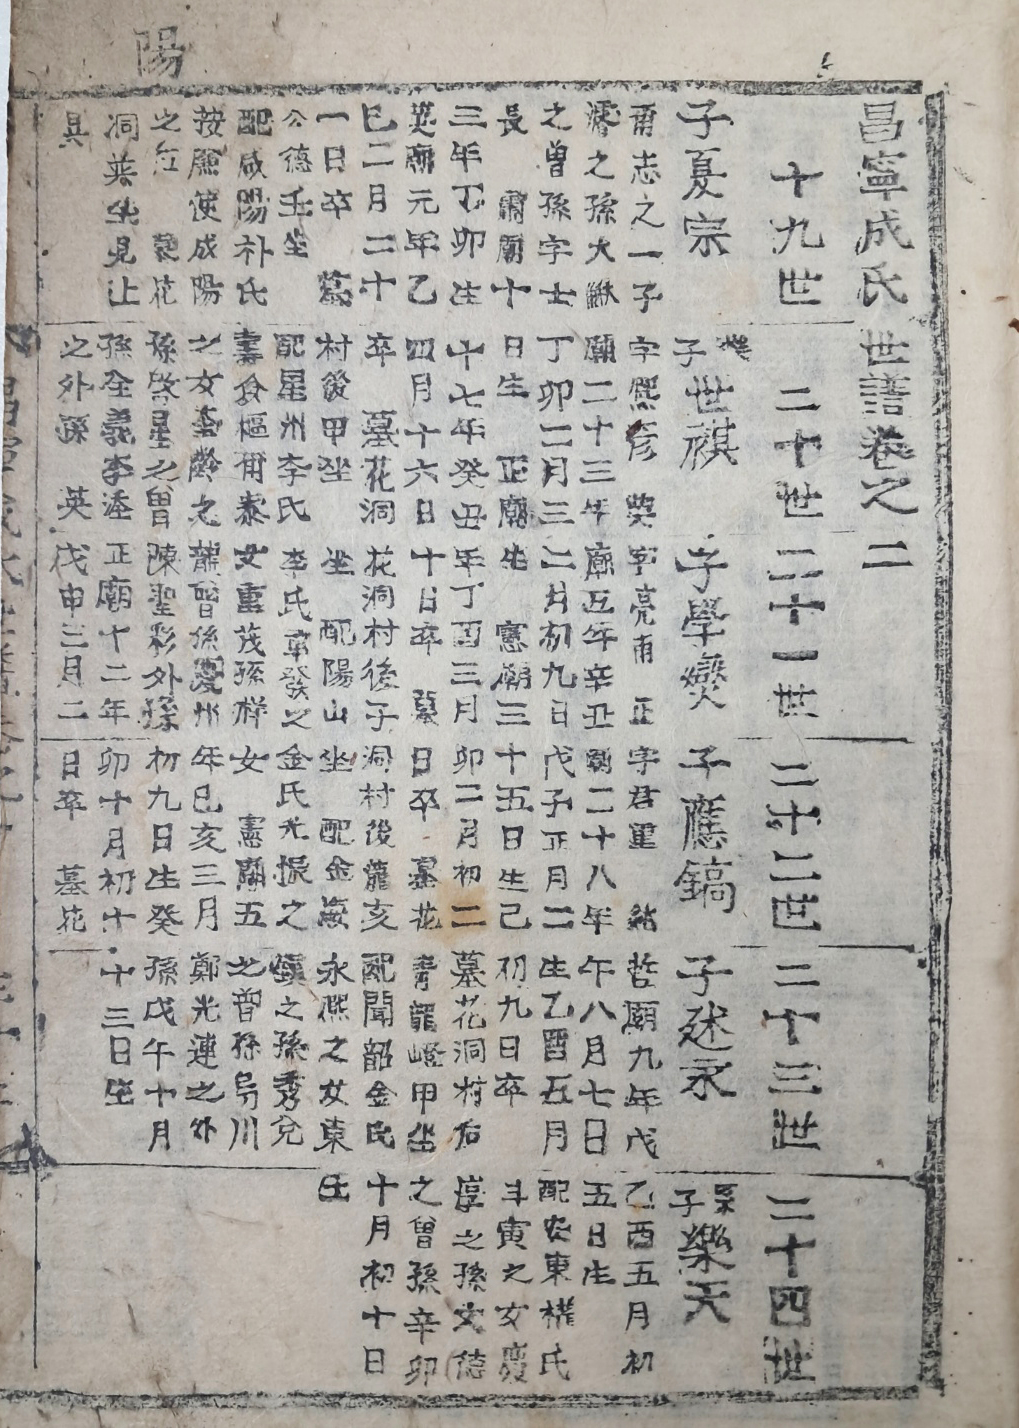 陽
昌寧成氏世譜卷之二
十九世
二十世
二十一世
二十二世
二十三世
二十四世
子夏宗
甫志之一子
濬之孫大
之曾孫字士
長 肅廟十
三年丁卯生
英廟元年乙
巳二月二十
一日卒 墓
公德壬坐
配咸陽朴氏
按廉使成陽
之 墓花
洞 坐見上
具
子世祺
字熙彦 英
廟二十三年
丁卯二月三
日生 正廟
十七年癸丑
四月十六日
卒 墓花洞
村後甲坐
配星州李氏
壽僉樞爾泰
之女 齡之
孫啓星之曾
孫全義李
之外孫 英
子學燮
字亮甫 正
廟五年辛丑
二月初九日
生 憲廟三
年丁酉三月
十日卒 墓
花洞村後子
坐 配陽山
李氏章發之
女重茂孫祥
龍曾孫慶州
陳聖彩外孫
正廟十二年
戊申三月二
子應鎬
字君重 純
廟二十八年
戊子正月二
十五日生己
卯二月初二
日卒 墓花
洞村後龍亥
坐 配金海
金氏光振之
女 憲廟五
年己亥三月
初九日生癸
卯十月初十
日卒 墓花
子述永
哲廟九年戊
午八月七日
生乙酉五月
初九日卒
墓花洞村后
靑龍嶝甲坐
配聞韶金氏
永熙之女東
鎭之孫秀兌
之曾孫烏川
鄭光連之外
孫戊午十月
十三日生
系子樂天
乙酉五月初
五日生
配安東權氏
斗寅之女
淳之孫文德
之曾孫辛卯
十月初十日
生